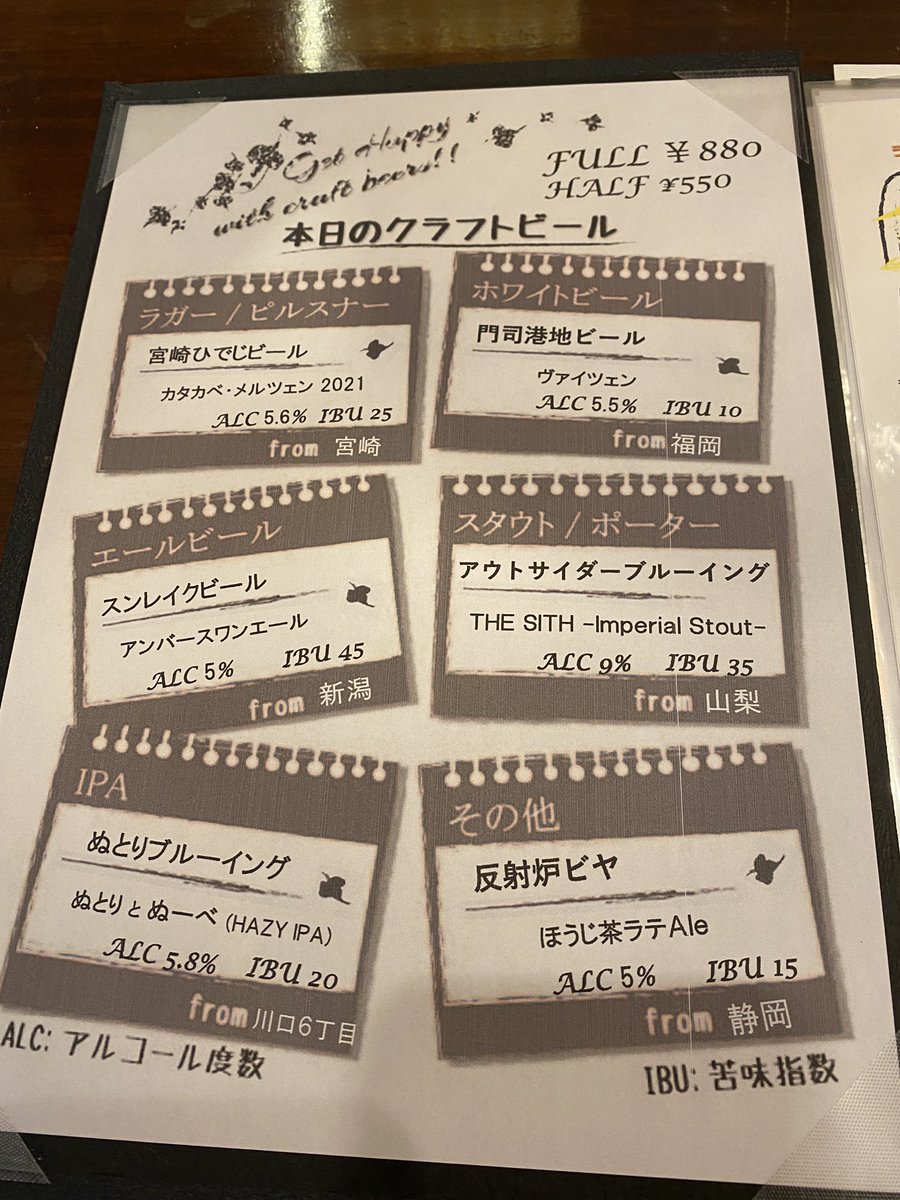 Get Happy
with craft beers!!
FULL ¥880
HALF ¥550
本日のクラフトビール
ラガー / ピルスナー
宮崎ひでじビール
カタカベ・メルツェン 2021
ALC 5.6% IBU 25
from 宮崎
ホワイトビール
門司港地ビール
ヴァイツェン
ALC 5.5% IBU 10
from 福岡
エールビール
スンレイクビール
アンバースワンエール
ALC 5% IBU 45
from 新潟
スタウト / ポーター
アウトサイダーブルーイング
THE SITH -Imperial Stout-
ALC 9% IBU 35
from 山梨
IPA
ぬとりブルーイング
ぬとりとぬーべ (HAZY IPA)
ALC 5.8% IBU 20
from 川口6丁目
その他
反射炉ビヤ
ほうじ茶ラテAle
ALC 5% IBU 15
from 静岡
ALC: アルコール度数
IBU: 苦味指数